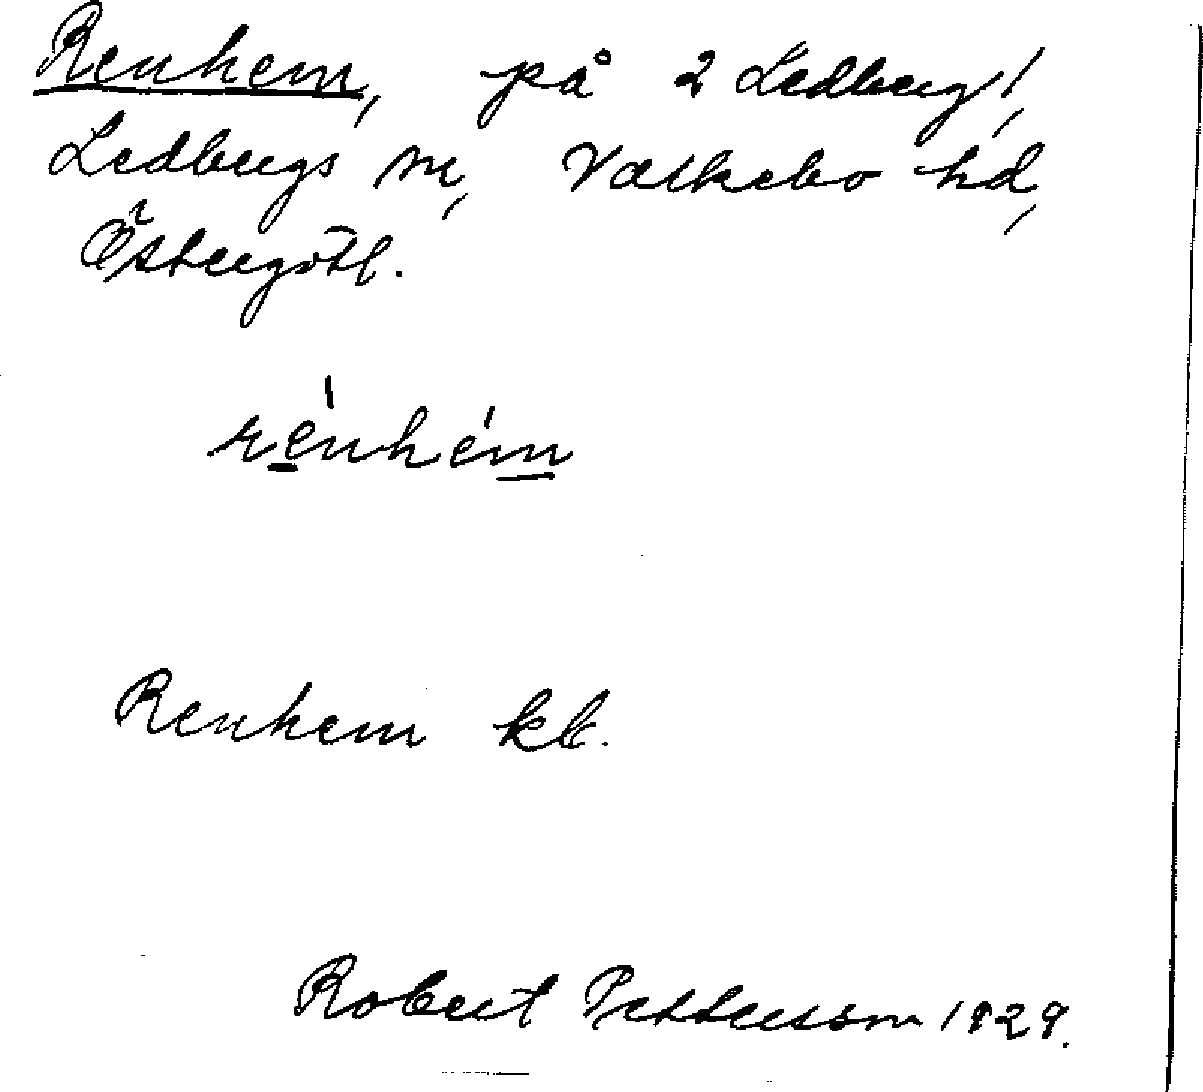 Renhem, på 2 Ledberg,
Ledbergs sn, Valkebo hd,
Östergötl.
rénhém
Renhem kb.
Robert Pettersson 1929.